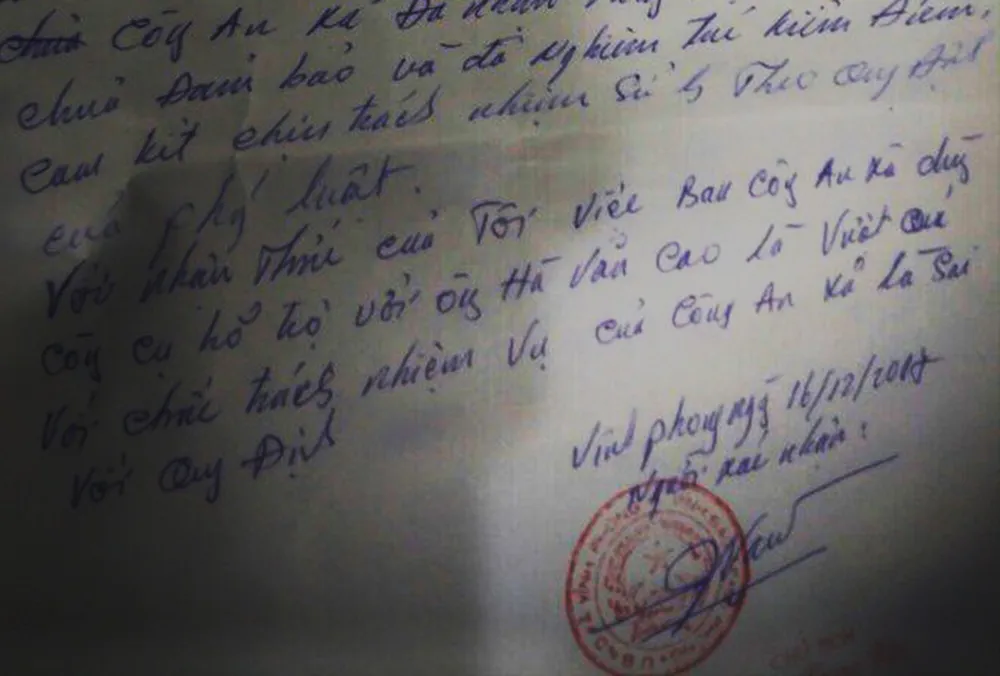 chưa Công An xã Đã nhận
chưa Đảm bảo và đã nghiêm túc kiểm Điểm,
cam kết chịu trách nhiệm Sử lý Theo Quy Định
của pháp luật.
Với nhận Thức của Tôi việc Ban Công An xã dùng
công cụ hổ trợ với ông Hà Văn Cao là Vượt quá
với chức trách nhiệm vụ của Công An xã là Sai
với Quy Định
Vĩnh phong ngày 16/12/2017
Người xác nhận: